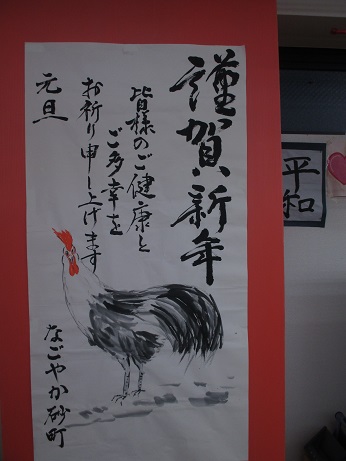 謹賀新年
皆様のご健康と
ご多幸を
お祈り申し上げます
元旦
なごやか砂町
平和